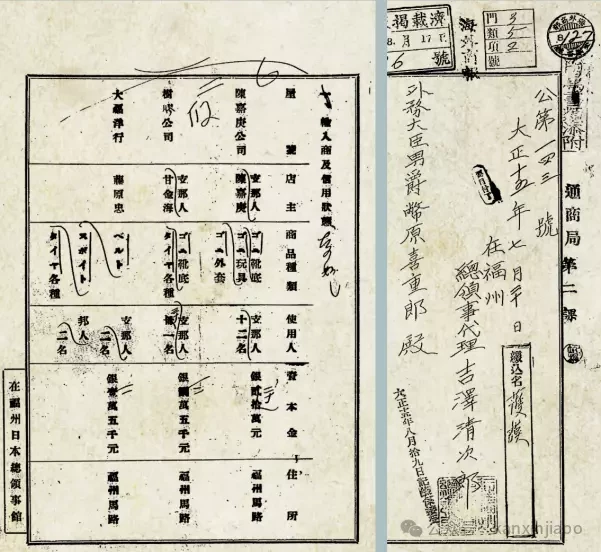 通商局第二課
門類項號
3
5
2
海外商報
濟載揭
8.月17日
6號
公第一四三號
大正十五年七月 日
在福州
總領事代理 吉澤清次郎
外務大臣男爵幣原喜重郎殿
大正十五年八月拾九日
輸入商及信用狀態
屋號 店主 商品種類 使用人 資本金 住所
陳嘉庚公司 支那人 陳嘉庚 ゴム靴底 ゴム玩具 ゴム外套 支那人 十二名 銀貳拾萬元 福州馬路
樹膠公司 支那人 甘金海 ゴム靴底 タイヤ各種 支那人 一名 銀 萬五千元 福州馬路
大福洋行 藤原忠 ベルト スポイト タイヤ各種 支那人 二名 邦人 二名 銀壹萬五千元 福州馬路
在福州日本總領事館